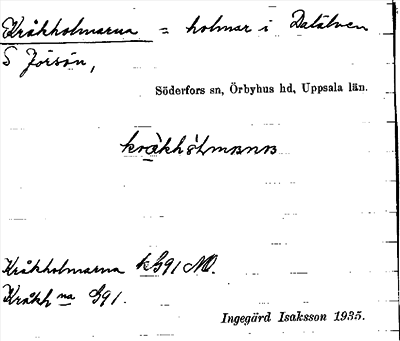 Kråkholmarna = holmar i Dalälven
S Jörsön,
Söderfors sn, Örbyhus hd, Uppsala län.
Kråkholmarna
Kråkh na G91.
Ingegärd Isaksson 1935.